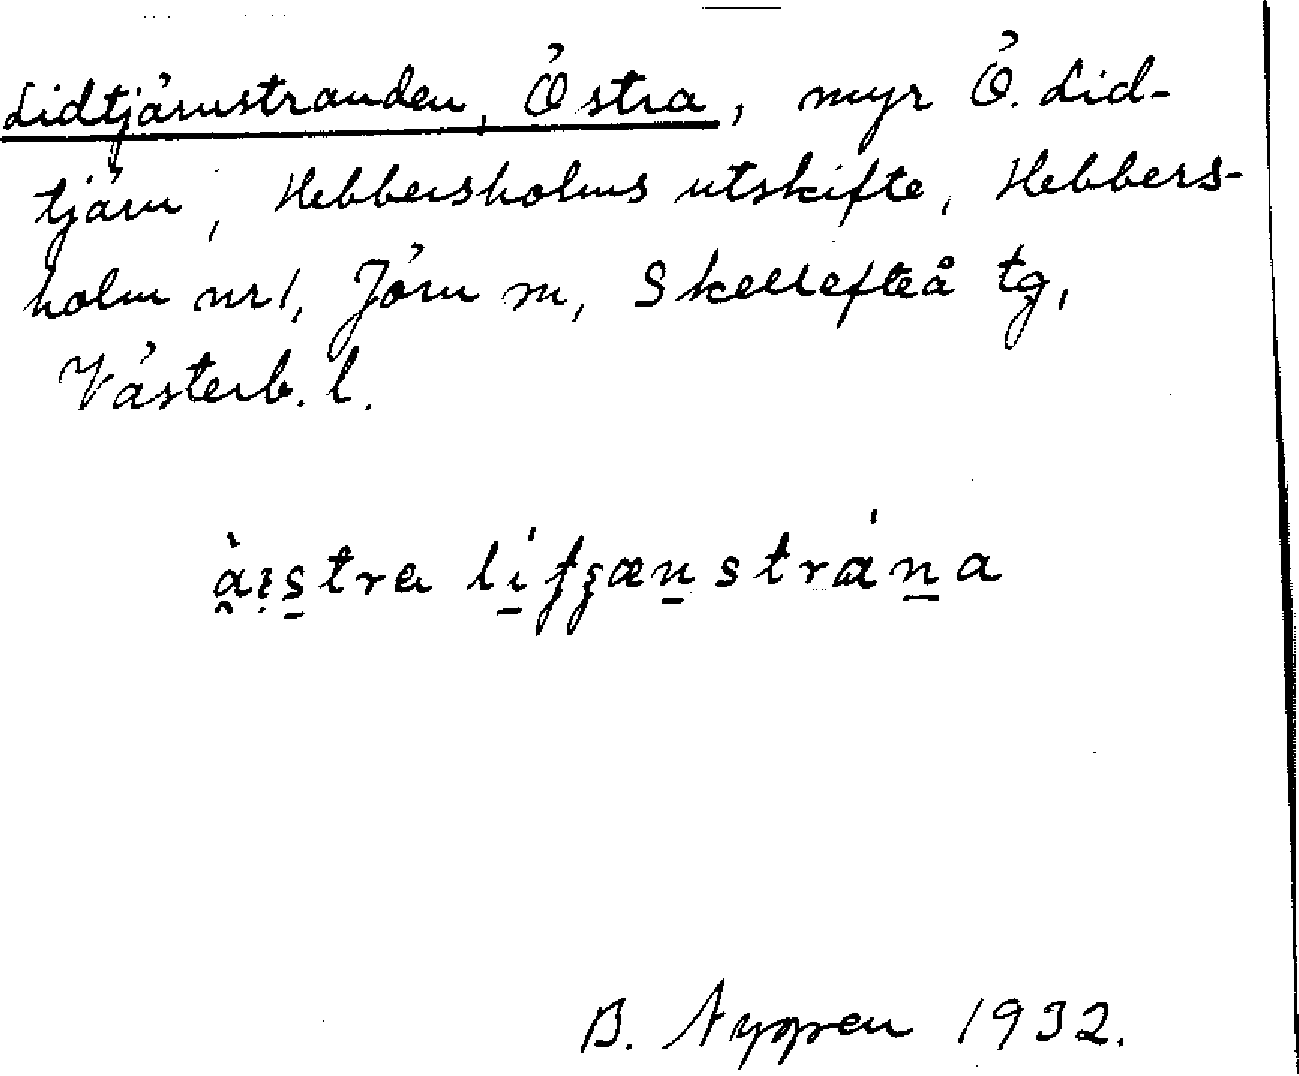 Lidtjärnstranden, Östra, myr Ö. Lid-
tjärn, Hebbersholms utskifte, Hebbers-
holm nr 1, Jörn sn, Skellefteå tg,
Västerb. l.
B. Nygren 1932.